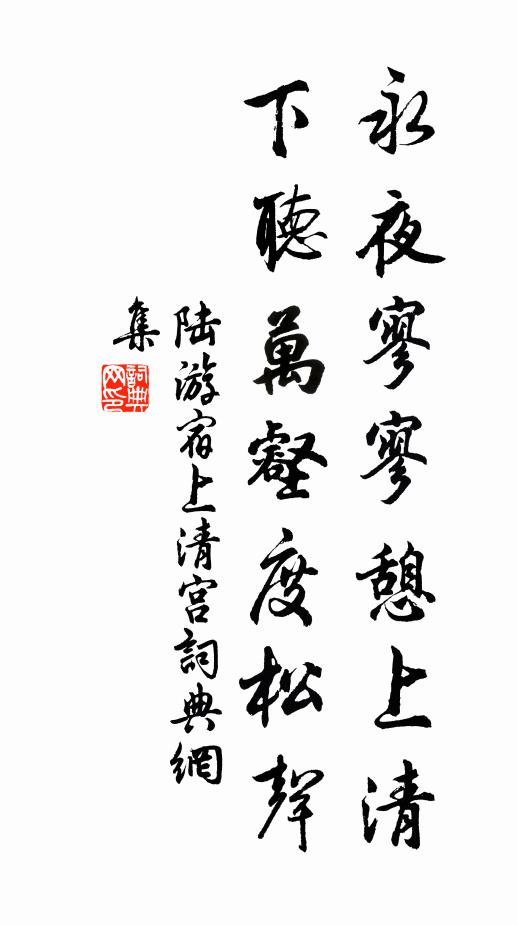 永夜寥寥憩上清
下聽萬壑度松聲
陸游宿上清宮詞典網
集
詞典網印